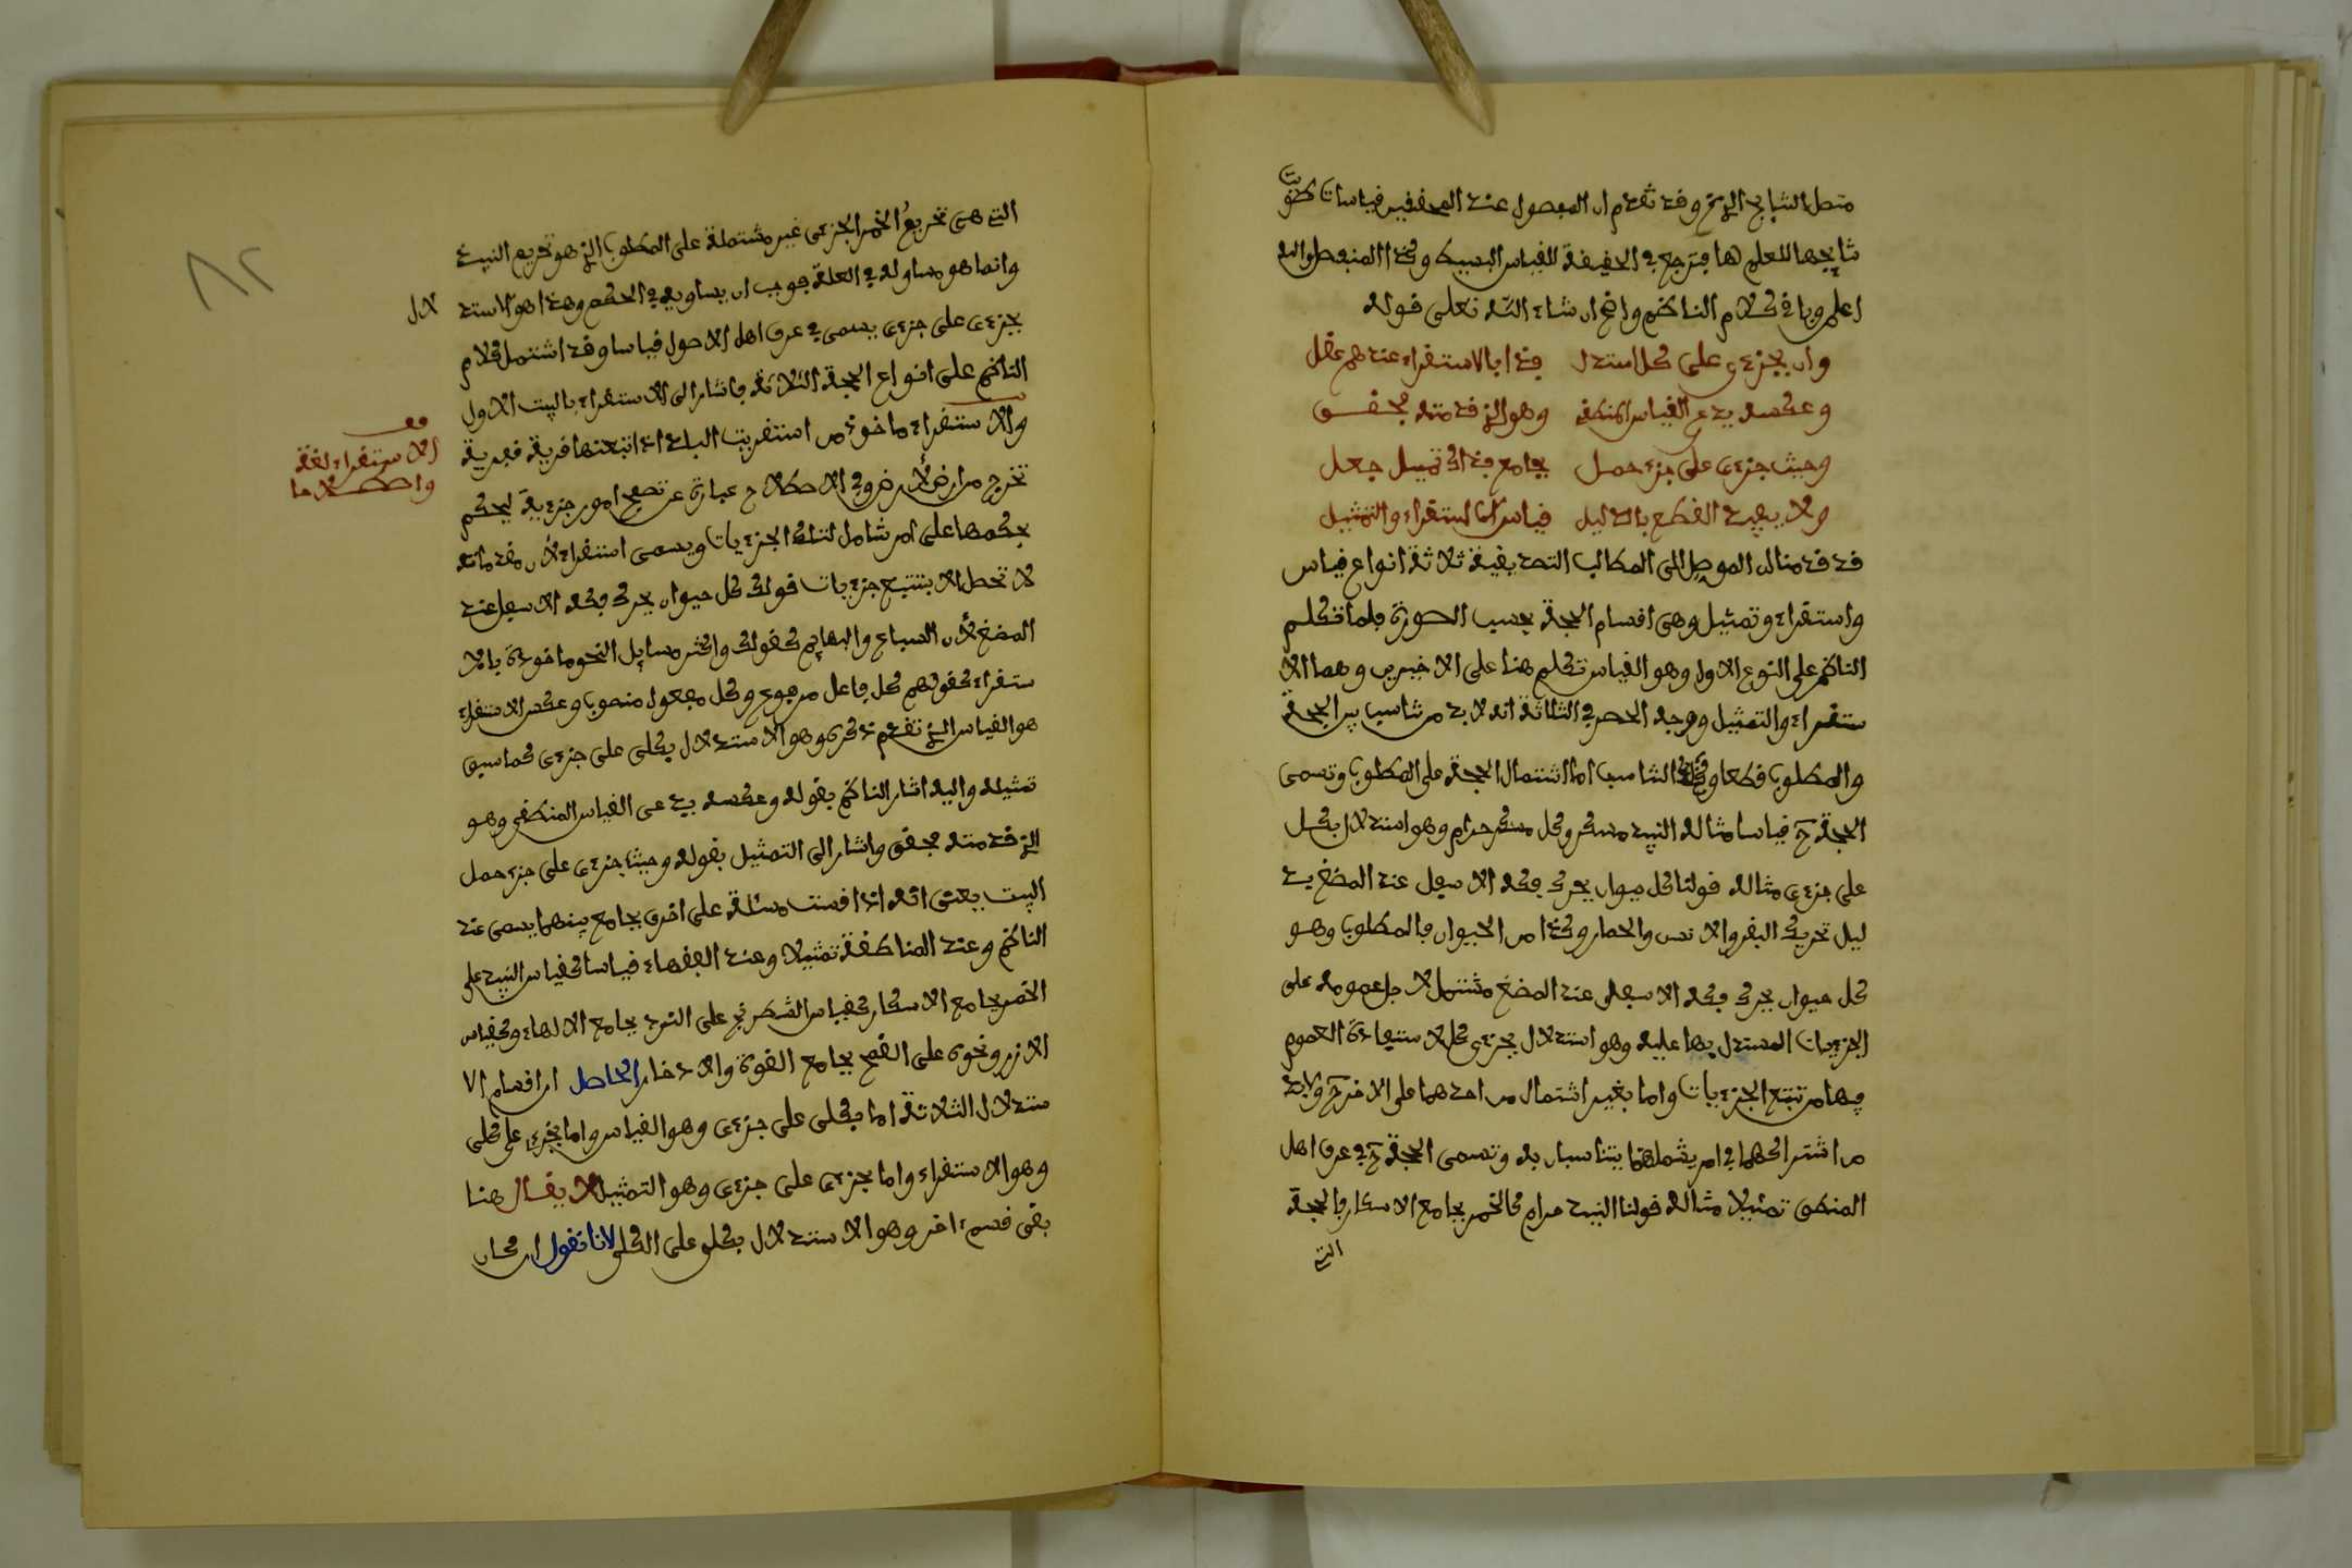 متصل النتايج الخ وقد تقدم ان المفصول عند المحققين قياسات طويت
نتايجها للعلم بها فترجع في الحقيقة للقياس البسيط وكذا المنفصل والله
اعلم وباقي كلام الناظم واضح ان شاء الله تعلى قوله
وان بجزءي على كل استدل فذا بالاستقراء عندهم عقل
وعكسه يدعى القياس المنطقي وهو الذي قدمته فحقق
وحيث جزءي على جزء حمل بجامع فذاك تمثيل جعل
ولا يفيد القطع بالدليل قياس الاستقراء والتمثيل
قد قدمنا ان الموصل الى المطالب التصديقية ثلاثة انواع قياس
واستقراء وتمثيل وهي اقسام الحجة بحسب الصورة فلما تكلم
الناظم على النوع الاول وهو القياس تكلم هنا على الاخيرين وهما الا
ستقراء والتمثيل ووجه الحصر في الثلاثة انه لا بد من تناسب بين الحجة
والمطلوب قطعا وذلك التناسب اما اشتمال الحجة على المطلوب وتسمى
الحجة ح قياسا مثاله النبيذ مسكر وكل مسكر حرام وهو استدلال بكل
على جزءي مثاله قولنا كل حيوان يحرك فكه الاسفل عند المضغ بد
ليل تحريك البقر والانس والحمار وكذا من الحيوان فالمطلوب وهو
كل حيوان يحرك فكه الاسفل عند المضغ مشتمل لاجل عمومه على
الجزءيات المستدل بها عليه وهو استدلال بجزءي على كل لاستفادة العموم
فيها من تتبع الجزءيات واما بغير اشتمال من احدهما على الاخر ح ولابد
من اشتراكهما في امر يشملهما يتناسبان به وتسمى الحجة ح في عرف اهل
المنطق تمثيلا مثاله قولنا النبيذ حرام كالخمر بجامع الاسكار فالحجة
التي
التي هي تحريم الخمر الجزءي غير مشتملة على المطلوب الذي هو تحريم النبيذ
وانما هو مساو له في العلة فوجب ان يساويه في الحكم وهذا هو الاستد
لال
بجزءي على جزءي يسمى في عرف اهل الاصول قياسا وقد اشتمل كلام
الناظم على انواع الحجة الثلاثة فاشار الى الاستقراء بالبيت الاول
والاستقراء ماخوذ من استقريت البلاد اذا اتبعتها قرية فقرية
قف
الاستقراء لغة
واصطلاحا
تخرج من ارض لارض وفي الاصطلاح عبارة عن تصفح امور جزءية ليحكم
بحكمها على امر شامل لتلك الجزءيات ويسمى استقراء لان مقدماته
لا تحصل الا بتتبع جزءيات قولك كل حيوان يحرك فكه الاسفل عند
المضغ لان السباع والبهايم كقولك واكثر مسايل النحو ماخوذة بالا
ستقراء كقولهم كل فاعل مرفوع وكل مفعول منصوب وعكس الاستقراء
هو القياس الذي تقدم ذكره وهو الاستدلال بكلي على جزءي كما سبق
تمثيله واليه اشار الناظم بقوله وعكسه يدعى القياس المنطقي وهو
الذي قدمته فحقق واشار الى التمثيل بقوله وحيث جزءي على جزء حمل
البيت بمعنى انه اذا قست مسالة على اخرى بجامع بينهما يسمى عند
الناظم وعند المناطقة تمثيلا وعند الفقهاء قياسا كقياس النبيذ على
الخمر بجامع الاسكار كقياس الشطرنج على النرد بجامع الالهاء وكقياس
الارز ونحوه على القمح بجامع القوت والادخار الحاصل ان اقسام الا
ستدلال الثلاثة اما بكلي على جزءي وهو القياس واما بجزءي على كلي
وهو الاستقراء واما بجزءي على جزءي وهو التمثيل لا يقال هنا
بقي قسم اخر وهو الاستدلال بكلي على الكلي لانا نقول ان كان
٨٢